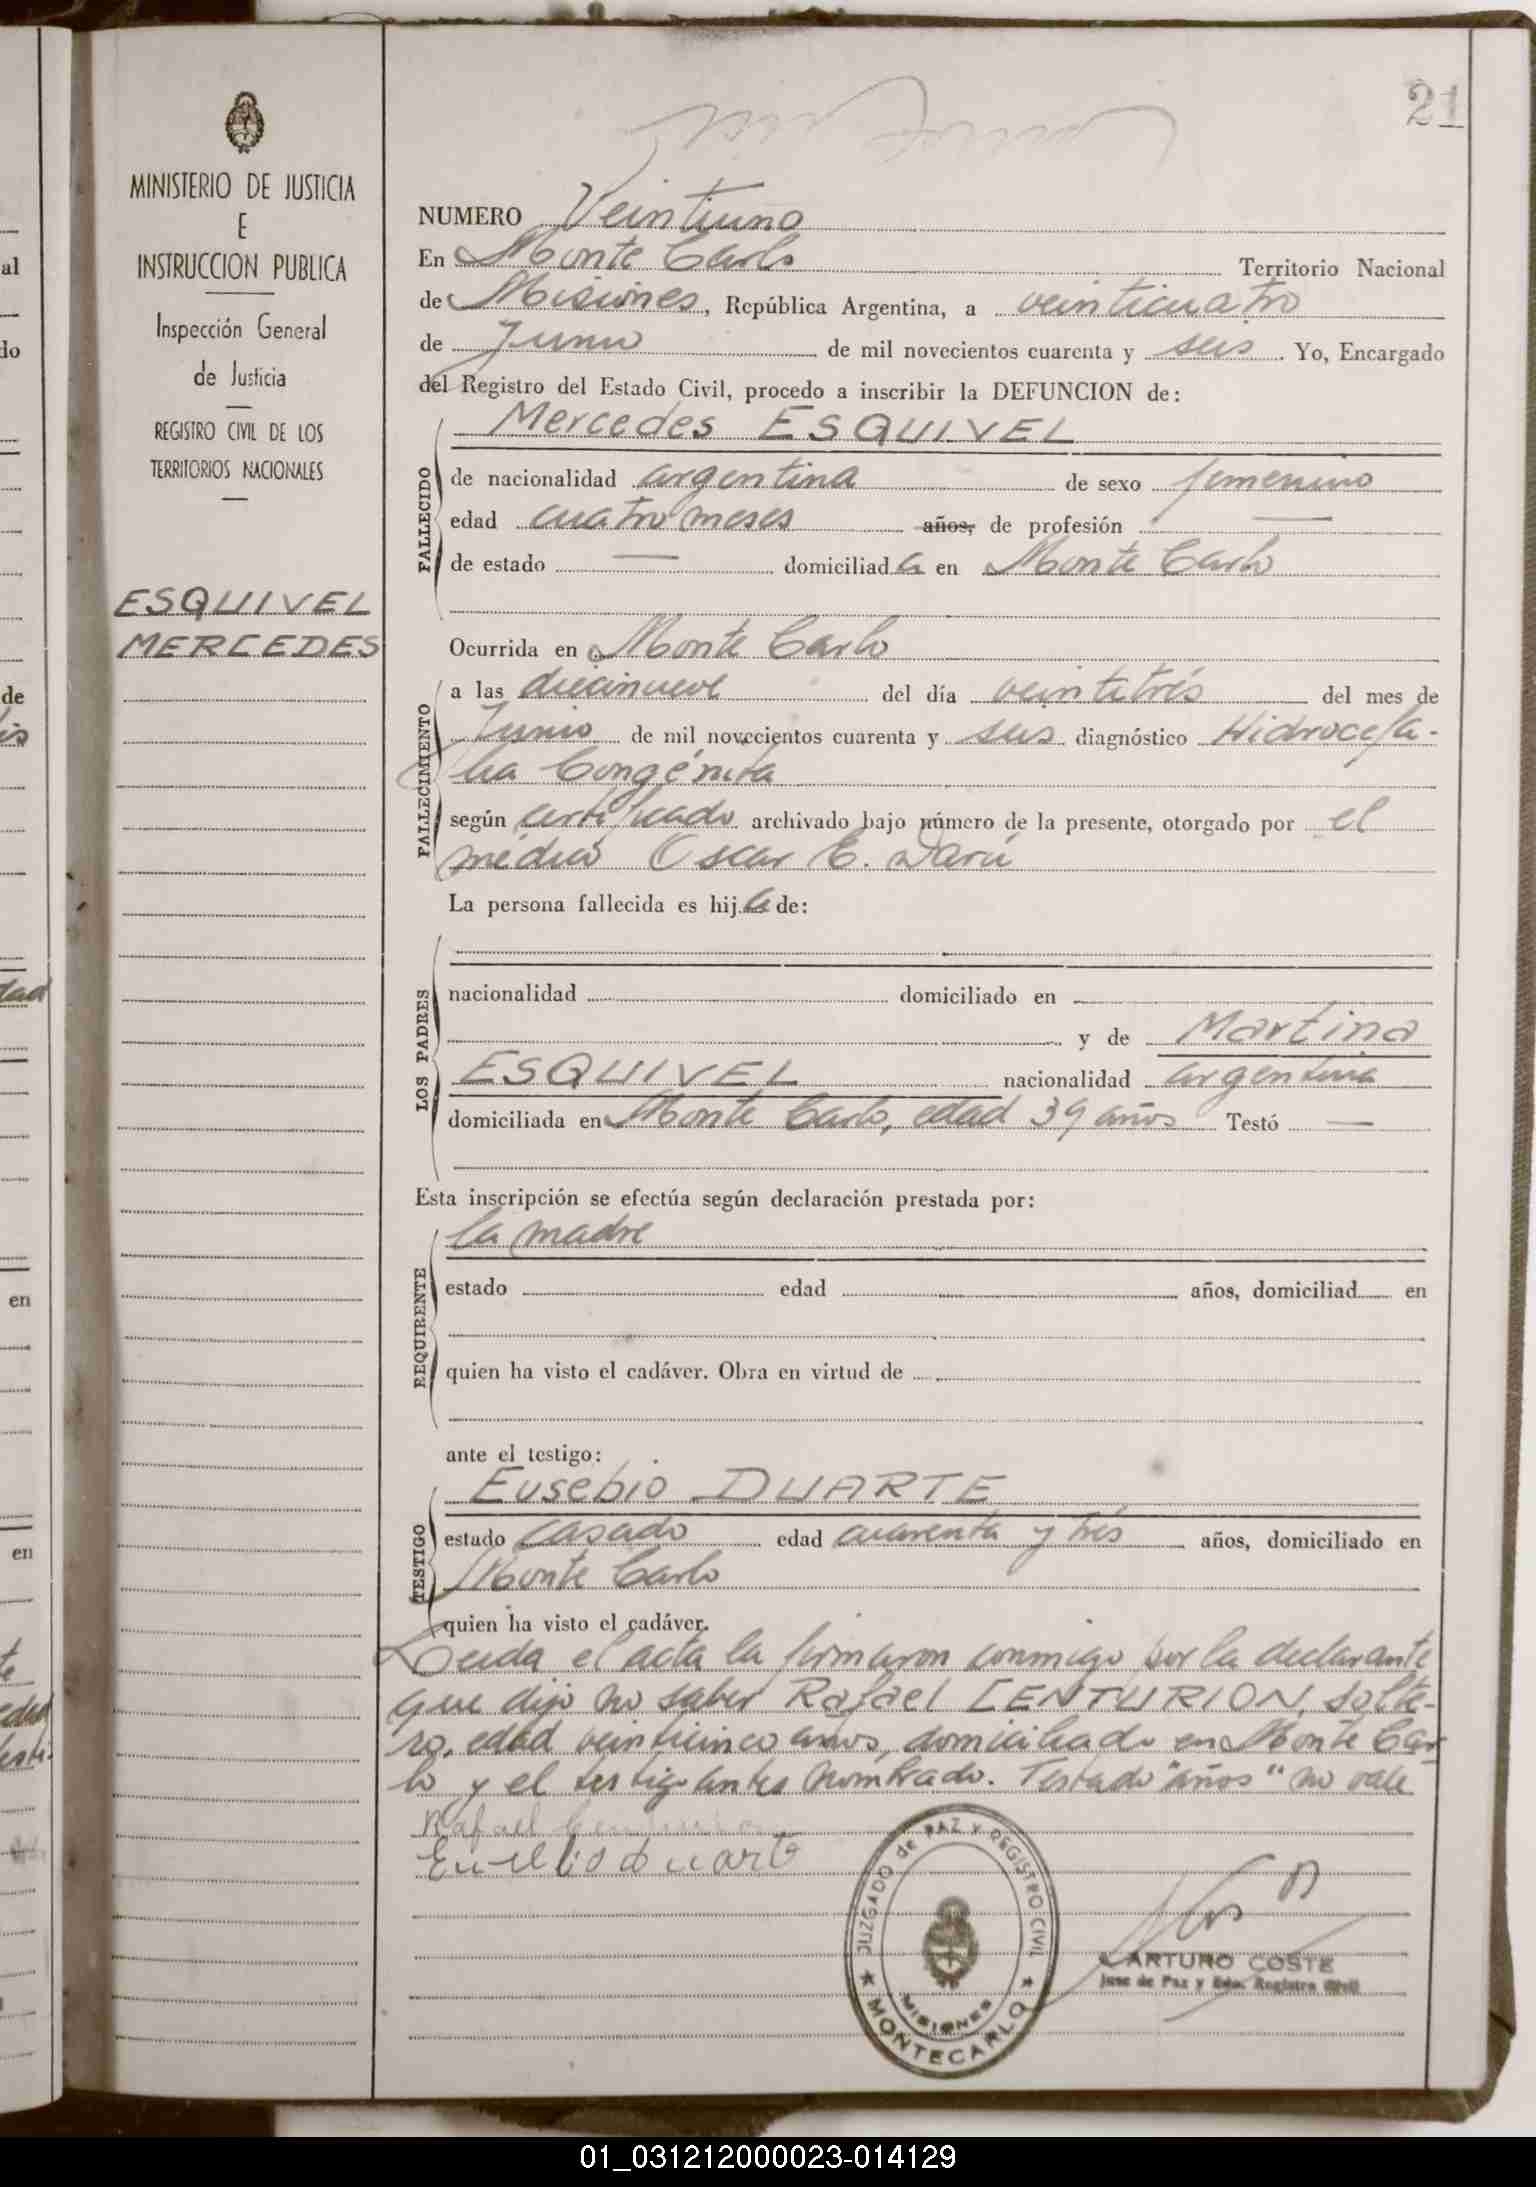 21
MINISTERIO DE JUSTICIA
E
INSTRUCCION PUBLICA
Inspección General
de Justicia
REGISTRO CIVIL DE LOS
TERRITORIOS NACIONALES
ESQUIVEL
MERCEDES
NUMERO Veintiuno
En Monte Carlo Territorio Nacional
de Misiones, República Argentina, a veinticuatro
de Junio de mil novecientos cuarenta y seis. Yo, Encargado
del Registro del Estado Civil, procedo a inscribir la DEFUNCION de:
Mercedes ESQUIVEL
FALLECIDO
de nacionalidad argentina de sexo femenino
edad cuatro meses años, de profesión —
de estado — domiciliada en Monte Carlo
Ocurrida en Monte Carlo
FALLECIMIENTO
a las diecinueve del día veintitrés del mes de
Junio de mil novecientos cuarenta y seis diagnóstico Hidrocefa-
lia Congénita
según certificado archivado bajo número de la presente, otorgado por el
médico Oscar E. Darú
La persona fallecida es hija de:
LOS PADRES
nacionalidad domiciliado en
y de Martina
ESQUIVEL nacionalidad argentina
domiciliada en Monte Carlo, edad 39 años Testó —
Esta inscripción se efectúa según declaración prestada por:
la madre
REQUIRENTE
estado edad años, domiciliad en
quien ha visto el cadáver. Obra en virtud de
ante el testigo:
Eusebio DUARTE
TESTIGO
estado casado edad cuarenta y trés años, domiciliado en
Monte Carlo
quien ha visto el cadáver.
Leida el acta la firmaron conmigo por la declarante
que dijo no saber Rafael CENTURION, solte-
ro, edad veinticinco años, domiciliado en Monte Car-
lo y el testigo antes nombrado. Testado "años" no vale
Rafael Centurion
Eusebio duarte
JUZGADO de PAZ Y REGISTRO CIVIL
MISIONES
★ MONTECARLO ★
ARTURO COSTE
Juez de Paz y Enc. Registro Civil
al
do
de
dad
en
en
01_031212000023-014129